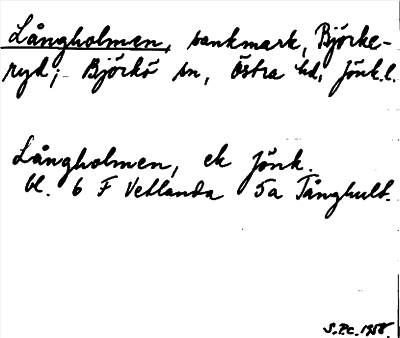 Långholmen, sankmark, Björke-
ryd; Björkö sn, Östra hd, Jönk.l.
Långholmen, ek Jönk.
bl. 6 F Vetlanda 5a Tånghult.
S.Pc. 1958.